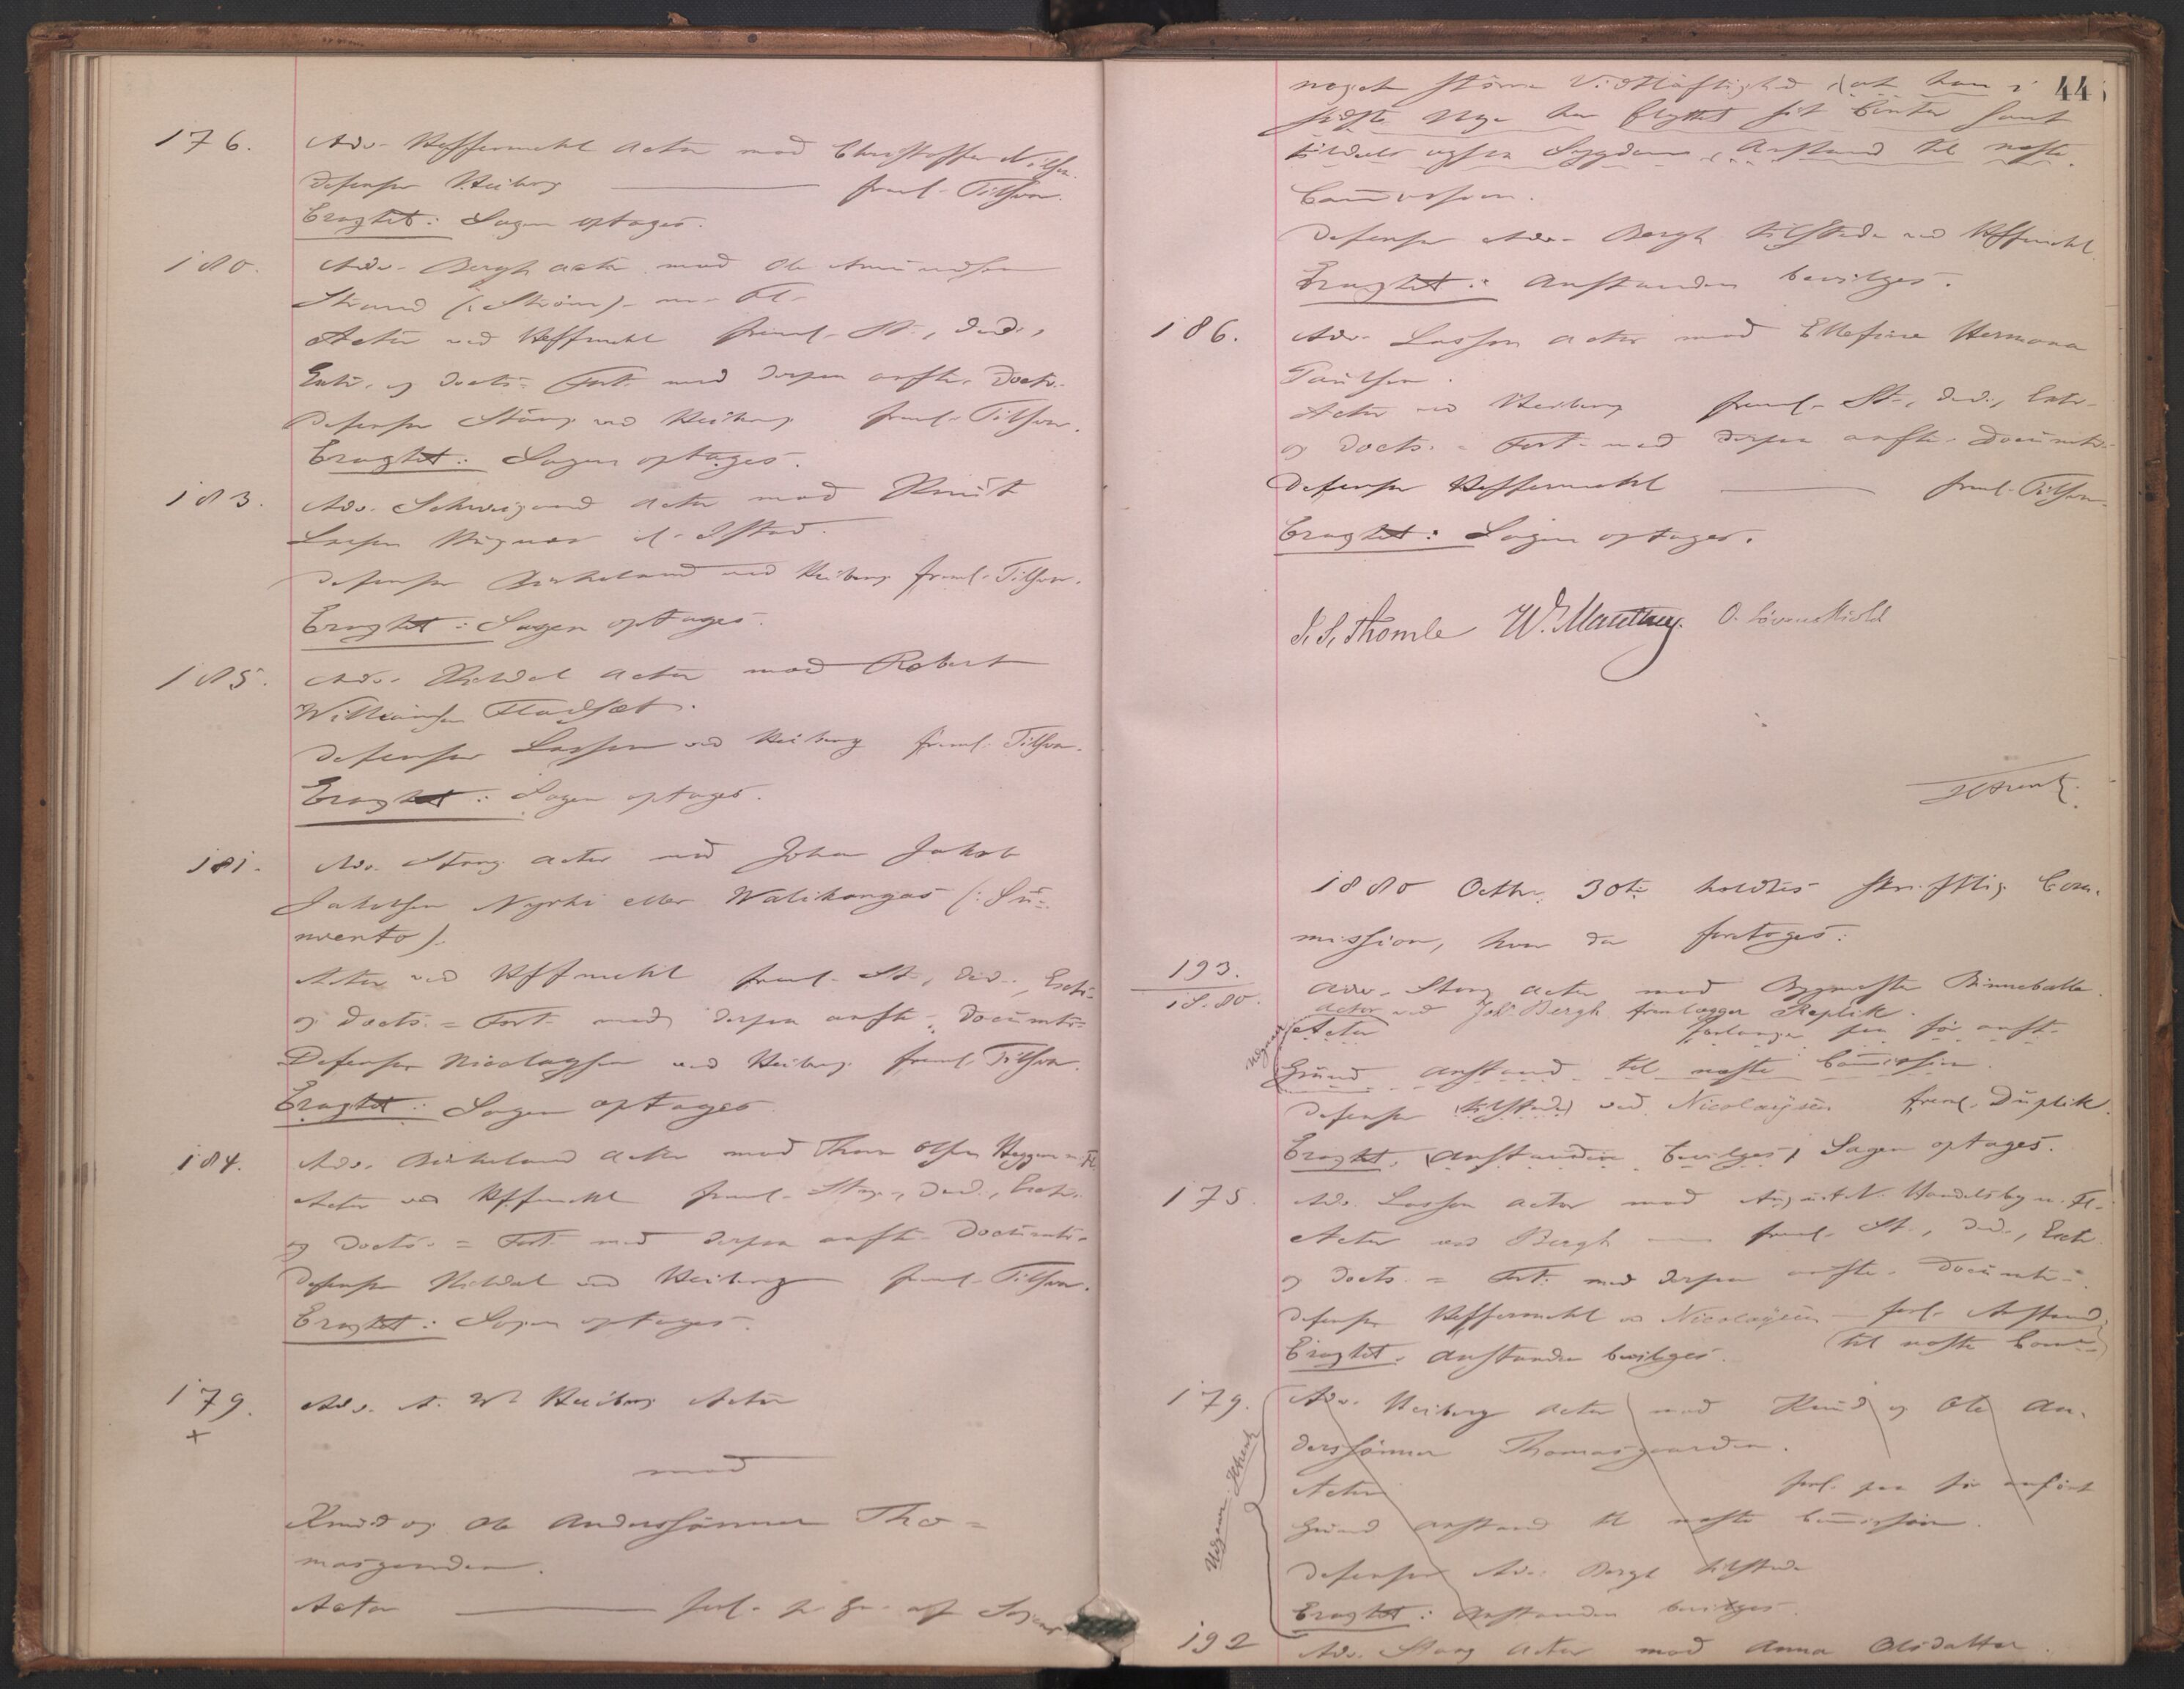 176. Adv. Heffermehl Actor mod Christoffer Nilsen.
Defensor Heiberg ——— freml. Tilsvar.
Eragtet: Sagen optages.
180. Adv. Bergh Actor mod Ole Amundsen
Strand (: Ström) m. Fl.
Actor ved Heffermehl freml. St., Ded.,
Extr. og Docts. = Fort. med derpaa anft. Docts.
Defensor Stang ved Heiberg freml. Tilsvar.
Eragtet: Sagen optages.
183. Adv. Schweigaard Actor mod Knut
Larsen
Defensor Birkeland ved Heiberg freml. Tilsvar.
Eragtet: Sagen optages.
185. Adv. Kildal Actor mod Robert
Williamsen Fladsæt.
Defensor Lasson ved Heiberg freml. Tilsvar.
Eragtet: Sagen optages.
181. Adv. Stang Actor mod Johan Jakob
Jakobsen Nyrhi eller Walikangas (: Su=
vvento).
Actor ved Heffermehl freml. St., Ded., Extr.
og Docts. = Fort. med derpaa anft. Documts.
Defensor Nicolaysen ved Heiberg freml. Tilsvar.
Eragtet: Sagen optages
184. Adv. Birkeland Actor mod Thore Olsen Heggen m. Fl.
Actor ved Heffermehl freml. Stevn., Ded., Extr.
og Docts. = Fort. med derpaa anft. Documts.
Defensor Kildal ved Heiberg freml. Tilsvar.
Eragtet: Sagen optages.
179. Adv. A. W. Heiberg Actor
+
mod
Knud og Ole Anderssønner Tho=
masgaarden.
Actor ——— forl. p. Gr. af Sagens
44
noget større Vidtløftighed, at han i
sidste Uge har flyttet sit Contor samt
tildels ogsaa Sygdom, Anstand til næste
Commission.
Defensor Adv. Bergh tilstede ved Heffermehl
Eragtet: Anstanden bevilges.
186. Adv. Lasson Actor mod Ellefine Hermana
Paulsen.
Actor ved Heiberg freml. St., Ded., Extr.
og Docts. = Fort. med derpaa anft. Documts.
Defensor Heffermehl ——— freml. Tilsvar.
Eragtet: Sagen optages.
S. S. Thomle W. Manthey. O. Løvenskiold
1880 Octbr. 30te holdtes skriftlig Com-
mission, hvor da foretoges:
193.
1 S. 80. Adv. Stang Actor mod Bygmester Binneballe.
Actor ved Joh. Bergh fremlægger Replik.
Actor forlanger paa før anft.
Udgaar
Grund Anstand til næste Commission.
Defensor (tilstede) ved Nicolaysen freml. Duplik.
Eragtet, (Anstanden bevilges) Sagen optages.
175. Adv. Lasson Actor mod August N. Handelsby m. Fl.
Actor ved Bergh — freml. St., Ded., Extr.
og Docts. = Fort. med derpaa anft. Documts.
Defensor Heffermehl v. Nicolaysen — forl. Anstand
(til næste Comm.)
Eragtet. Anstanden bevilges.
179. Adv. Heiberg Actor mod Knud og Ole An-
derssønner Thomasgaarden.
Actor forl. paa før anført
Grund Anstand til næste Commission.
Udgaar
Defensor Adv. Bergh tilstede
Eragtet: Anstanden bevilges.
192 Adv. Stang Actor mod Anna Olsdatter.